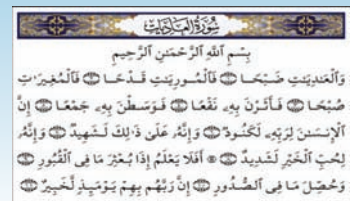 سُورَةُ العَادِيَات
بِسْمِ اللَّهِ الرَّحْمَٰنِ الرَّحِيمِ
وَالْعَٰدِيَٰتِ ضَبْحًا ۝ فَالْمُورِيَٰتِ قَدْحًا ۝ فَالْمُغِيرَٰتِ
صُبْحًا ۝ فَأَثَرْنَ بِهِۦ نَقْعًا ۝ فَوَسَطْنَ بِهِۦ جَمْعًا ۝ إِنَّ
الْإِنسَٰنَ لِرَبِّهِۦ لَكَنُودٌ ۝ وَإِنَّهُۥ عَلَىٰ ذَٰلِكَ لَشَهِيدٌ ۝ وَإِنَّهُۥ
لِحُبِّ الْخَيْرِ لَشَدِيدٌ ۝ ۞ أَفَلَا يَعْلَمُ إِذَا بُعْثِرَ مَا فِى الْقُبُورِ ۝
وَحُصِّلَ مَا فِى الصُّدُورِ ۝ إِنَّ رَبَّهُم بِهِمْ يَوْمَئِذٍ لَّخَبِيرٌۢ ۝